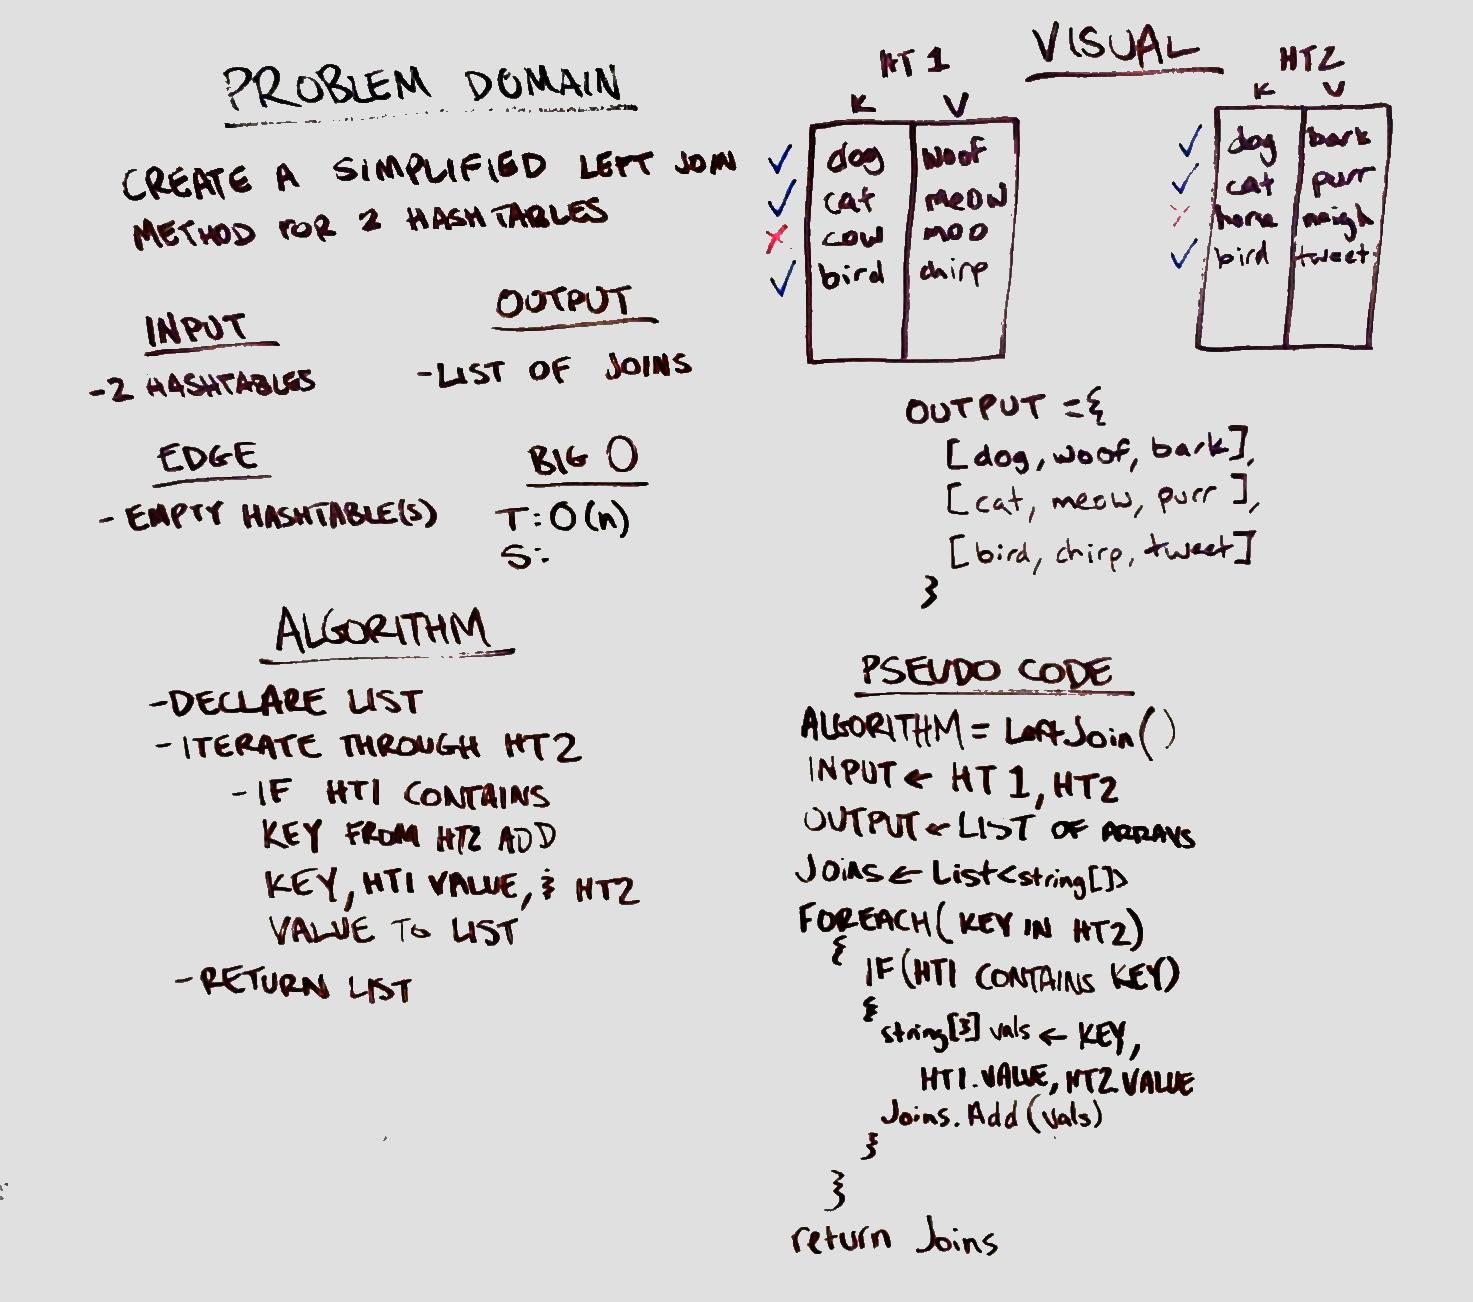 PROBLEM DOMAIN
CREATE A SIMPLIFIED LEFT JOIN
METHOD FOR 2 HASHTABLES
INPUT
-2 HASHTABLES
OUTPUT
-LIST OF JOINS
EDGE
- EMPTY HASHTABLE(S)
BIG O
T: O(n)
S:
ALGORITHM
-DECLARE LIST
-ITERATE THROUGH HT2
-IF HT1 CONTAINS
KEY FROM HT2 ADD
KEY, HT1 VALUE, & HT2
VALUE TO LIST
-RETURN LIST
VISUAL
HT1
K V
dog woof
cat meow
cow moo
bird chirp
HT2
K V
dog bark
cat purr
horse neigh
bird tweet
OUTPUT = {
[dog, woof, bark],
[cat, meow, purr],
[bird, chirp, tweet]
}
PSEUDO CODE
ALGORITHM = LeftJoin()
INPUT ← HT1, HT2
OUTPUT ← LIST OF ARRAYS
Joins ← List<string[]>
FOREACH(KEY IN HT2)
{
IF(HT1 CONTAINS KEY)
{
string[3] vals ← KEY,
HT1.VALUE, HT2.VALUE
Joins.Add(vals)
}
}
return Joins